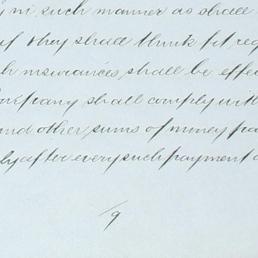 in such manner as shall
if they shall think fit
insurances shall be
Company shall comply with
and other sums of money
after every such payment
/9